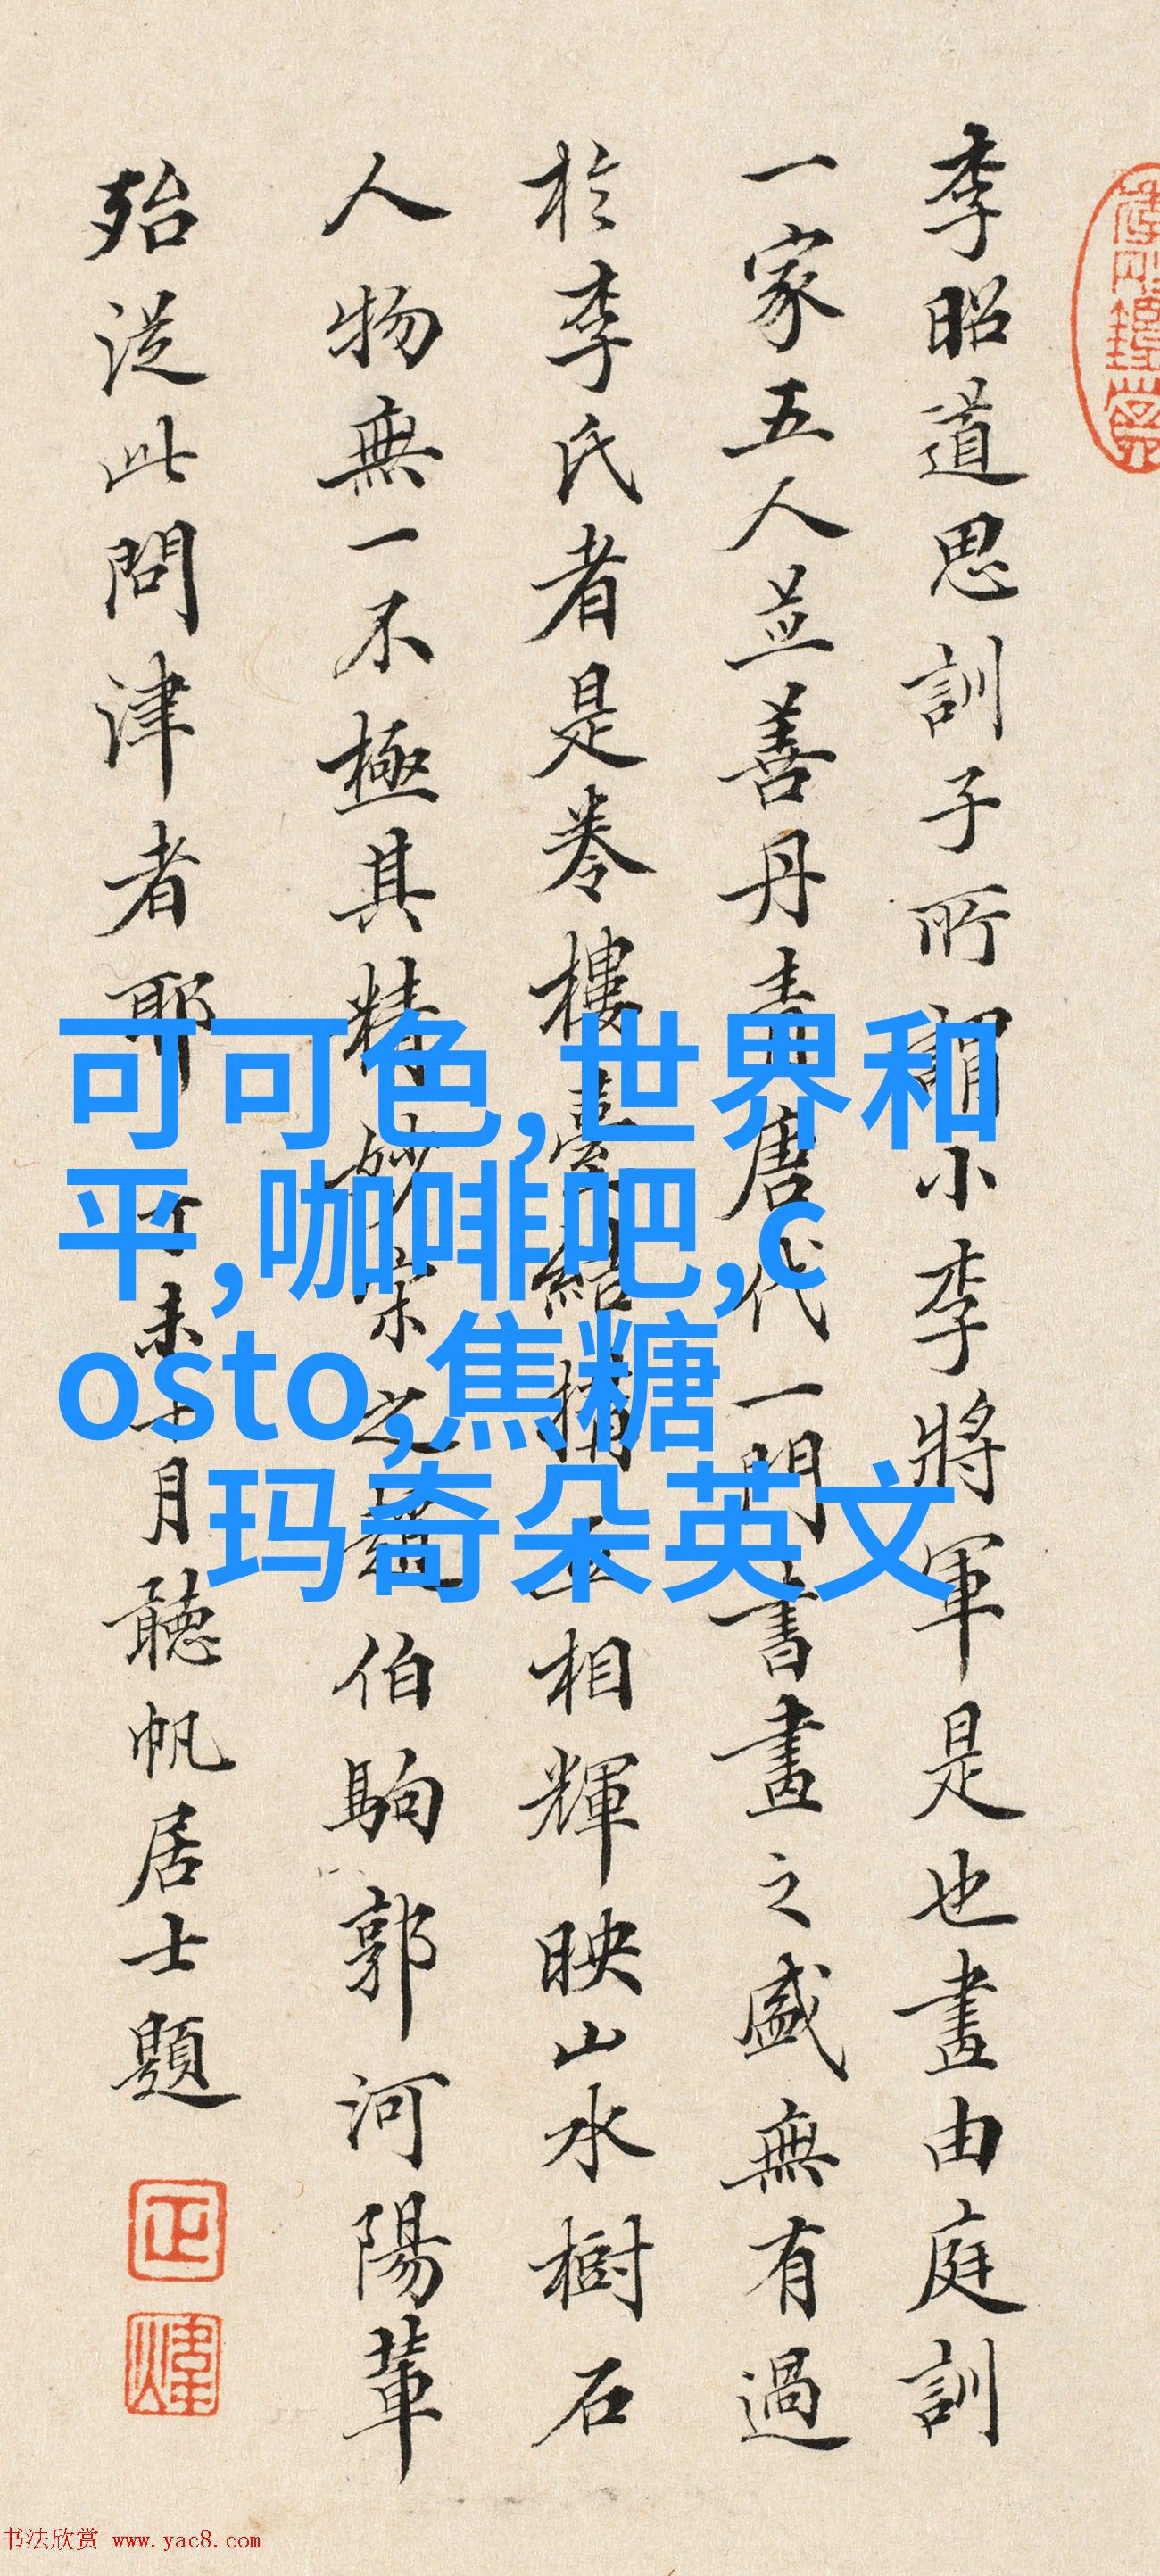 李昭道思訓子所謂小李將軍是也畫由庭訓
一家五人並善丹青唐代一門書畫之盛無有過
於李氏者是卷樓臺結構互相輝映山水樹石
人物無一不極其精妙宋之趙伯駒郭河陽輩
殆從此問津者耶丁未十月聽帆居士題
可可色,世界和
平,咖啡吧,c
osto,焦糖
玛奇朵英文
书法欣赏 www.yac8.com